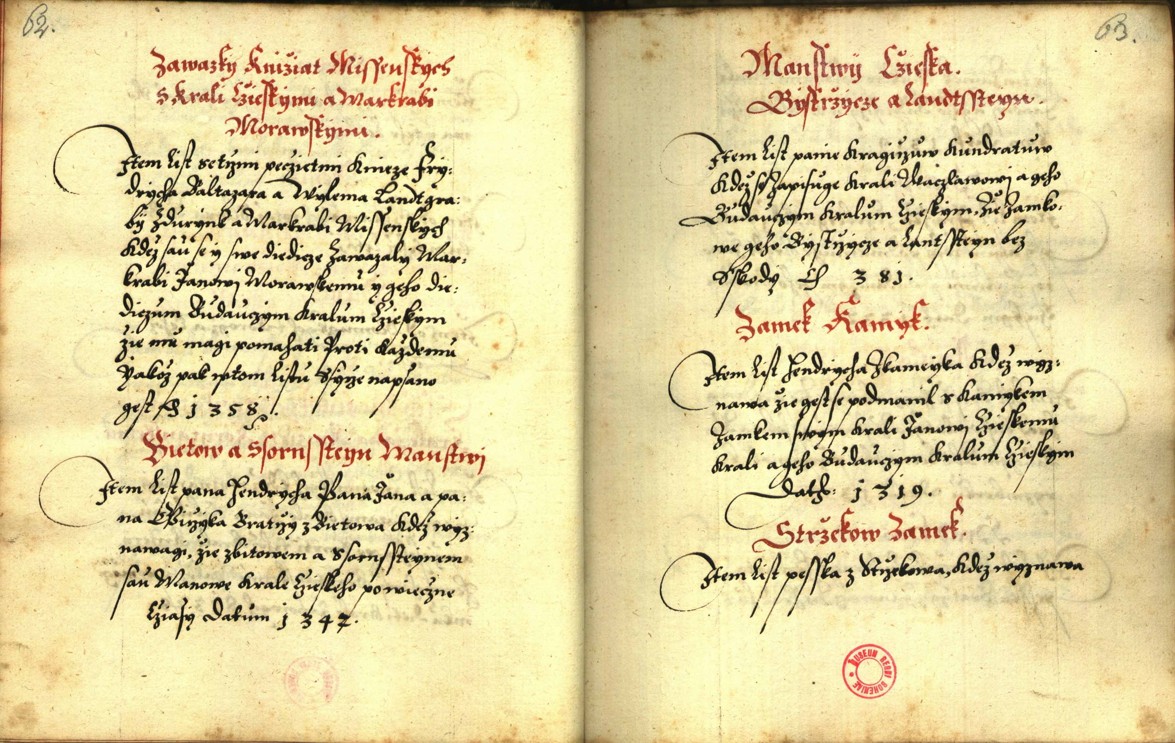 62.
Zawazky Knižiat Missenskych
s Krali Cžieskymi a Markrabi
Morawskymi.
Item list se tržmi peczietmi knieze Fry:
drycha Baltazara a Wylema Landtgra:
by z Durynk a Markrabi Missenskych
kdež sau se y swe diedicze zawazaly Mar:
krabi Janowi Morawskemu y geho die:
diczum Budauczym Kralum Czieskym
že mu magi pomahati Proti každemu
Yakož pak w tom listu Ssyrze napsano
gest 1358.
Bietow a Ssornssteyn Manstwi
Item list pana Hendrycha Pana Jana a pa:
na Bratrzy z Bietowa kdež wyz:
nawagi, že z bitowem a Ssornssteynem
sau Manowe Krale Czieskeho powieczne
Cziasy Datum 1347.
63.
Manstwij Cžieska.
Bystržycze a Landtssteyn.
Item list panie Kragirzuw Kundratuw
kdež se zapisuge Krali Waczlawowi a geho
Budauczym Kralum Czieskym, že zamko:
we geho Bystrzycze a Lantssteyn bez
Sskody 381.
Zamek Kamyk.
Item list Hendrycha z kameyka kdež wyz:
nawa že gest se podmanil s Kamykem
Zamkem swym Krali Janowi Czieskemu
Krali a geho Budauczym Kralum Czieskym
Dath: 1319.
Stržekow Zamek.
Item list pesska z Strzekowa, kdež wyznawa
MUSEUM REGNI BOHEMIAE